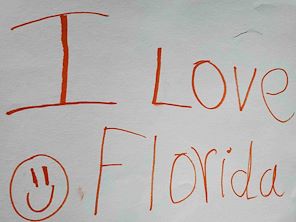 I Love
Florida